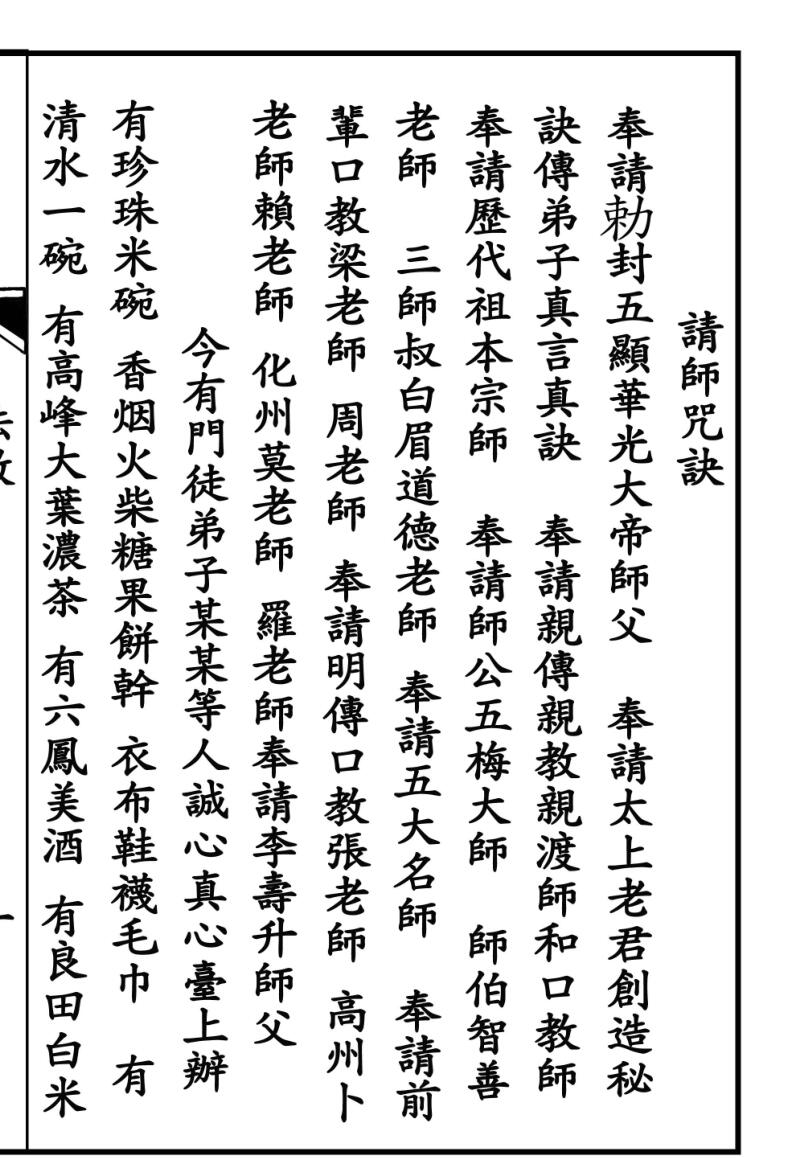 請師咒訣
奉請勅封五顯華光大帝師父 奉請太上老君創造秘
訣傳弟子真言真訣 奉請親傳親教親渡師和口教師
奉請歷代祖本宗師 奉請師公五梅大師 師伯智善
老師 三師叔白眉道德老師 奉請五大名師 奉請前
輩口教梁老師 周老師 奉請明傳口教張老師 高州卜
老師賴老師 化州莫老師 羅老師奉請李壽升師父
今有門徒弟子某某等人誠心真心臺上辦
有珍珠米碗 香烟火柴糖果餅幹 衣布鞋襪毛巾 有
清水一碗 有高峰大葉濃茶 有六鳳美酒 有良田白米